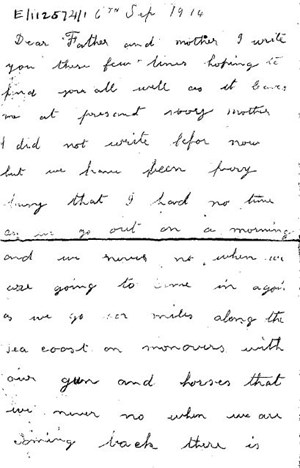 E/112574/1 6TH Sep 1914
Dear Father and mother I write
you these few lines hoping it
find you all well as it leaves
me at present sorry mother
I did not write befor now
but we have been very
busy that I had no time
as we go out on a morning
and we never no when we
are going to come in again
as we go for miles along the
sea coast on monovers with
our gun and horses that
we never no when we are
coming back there is